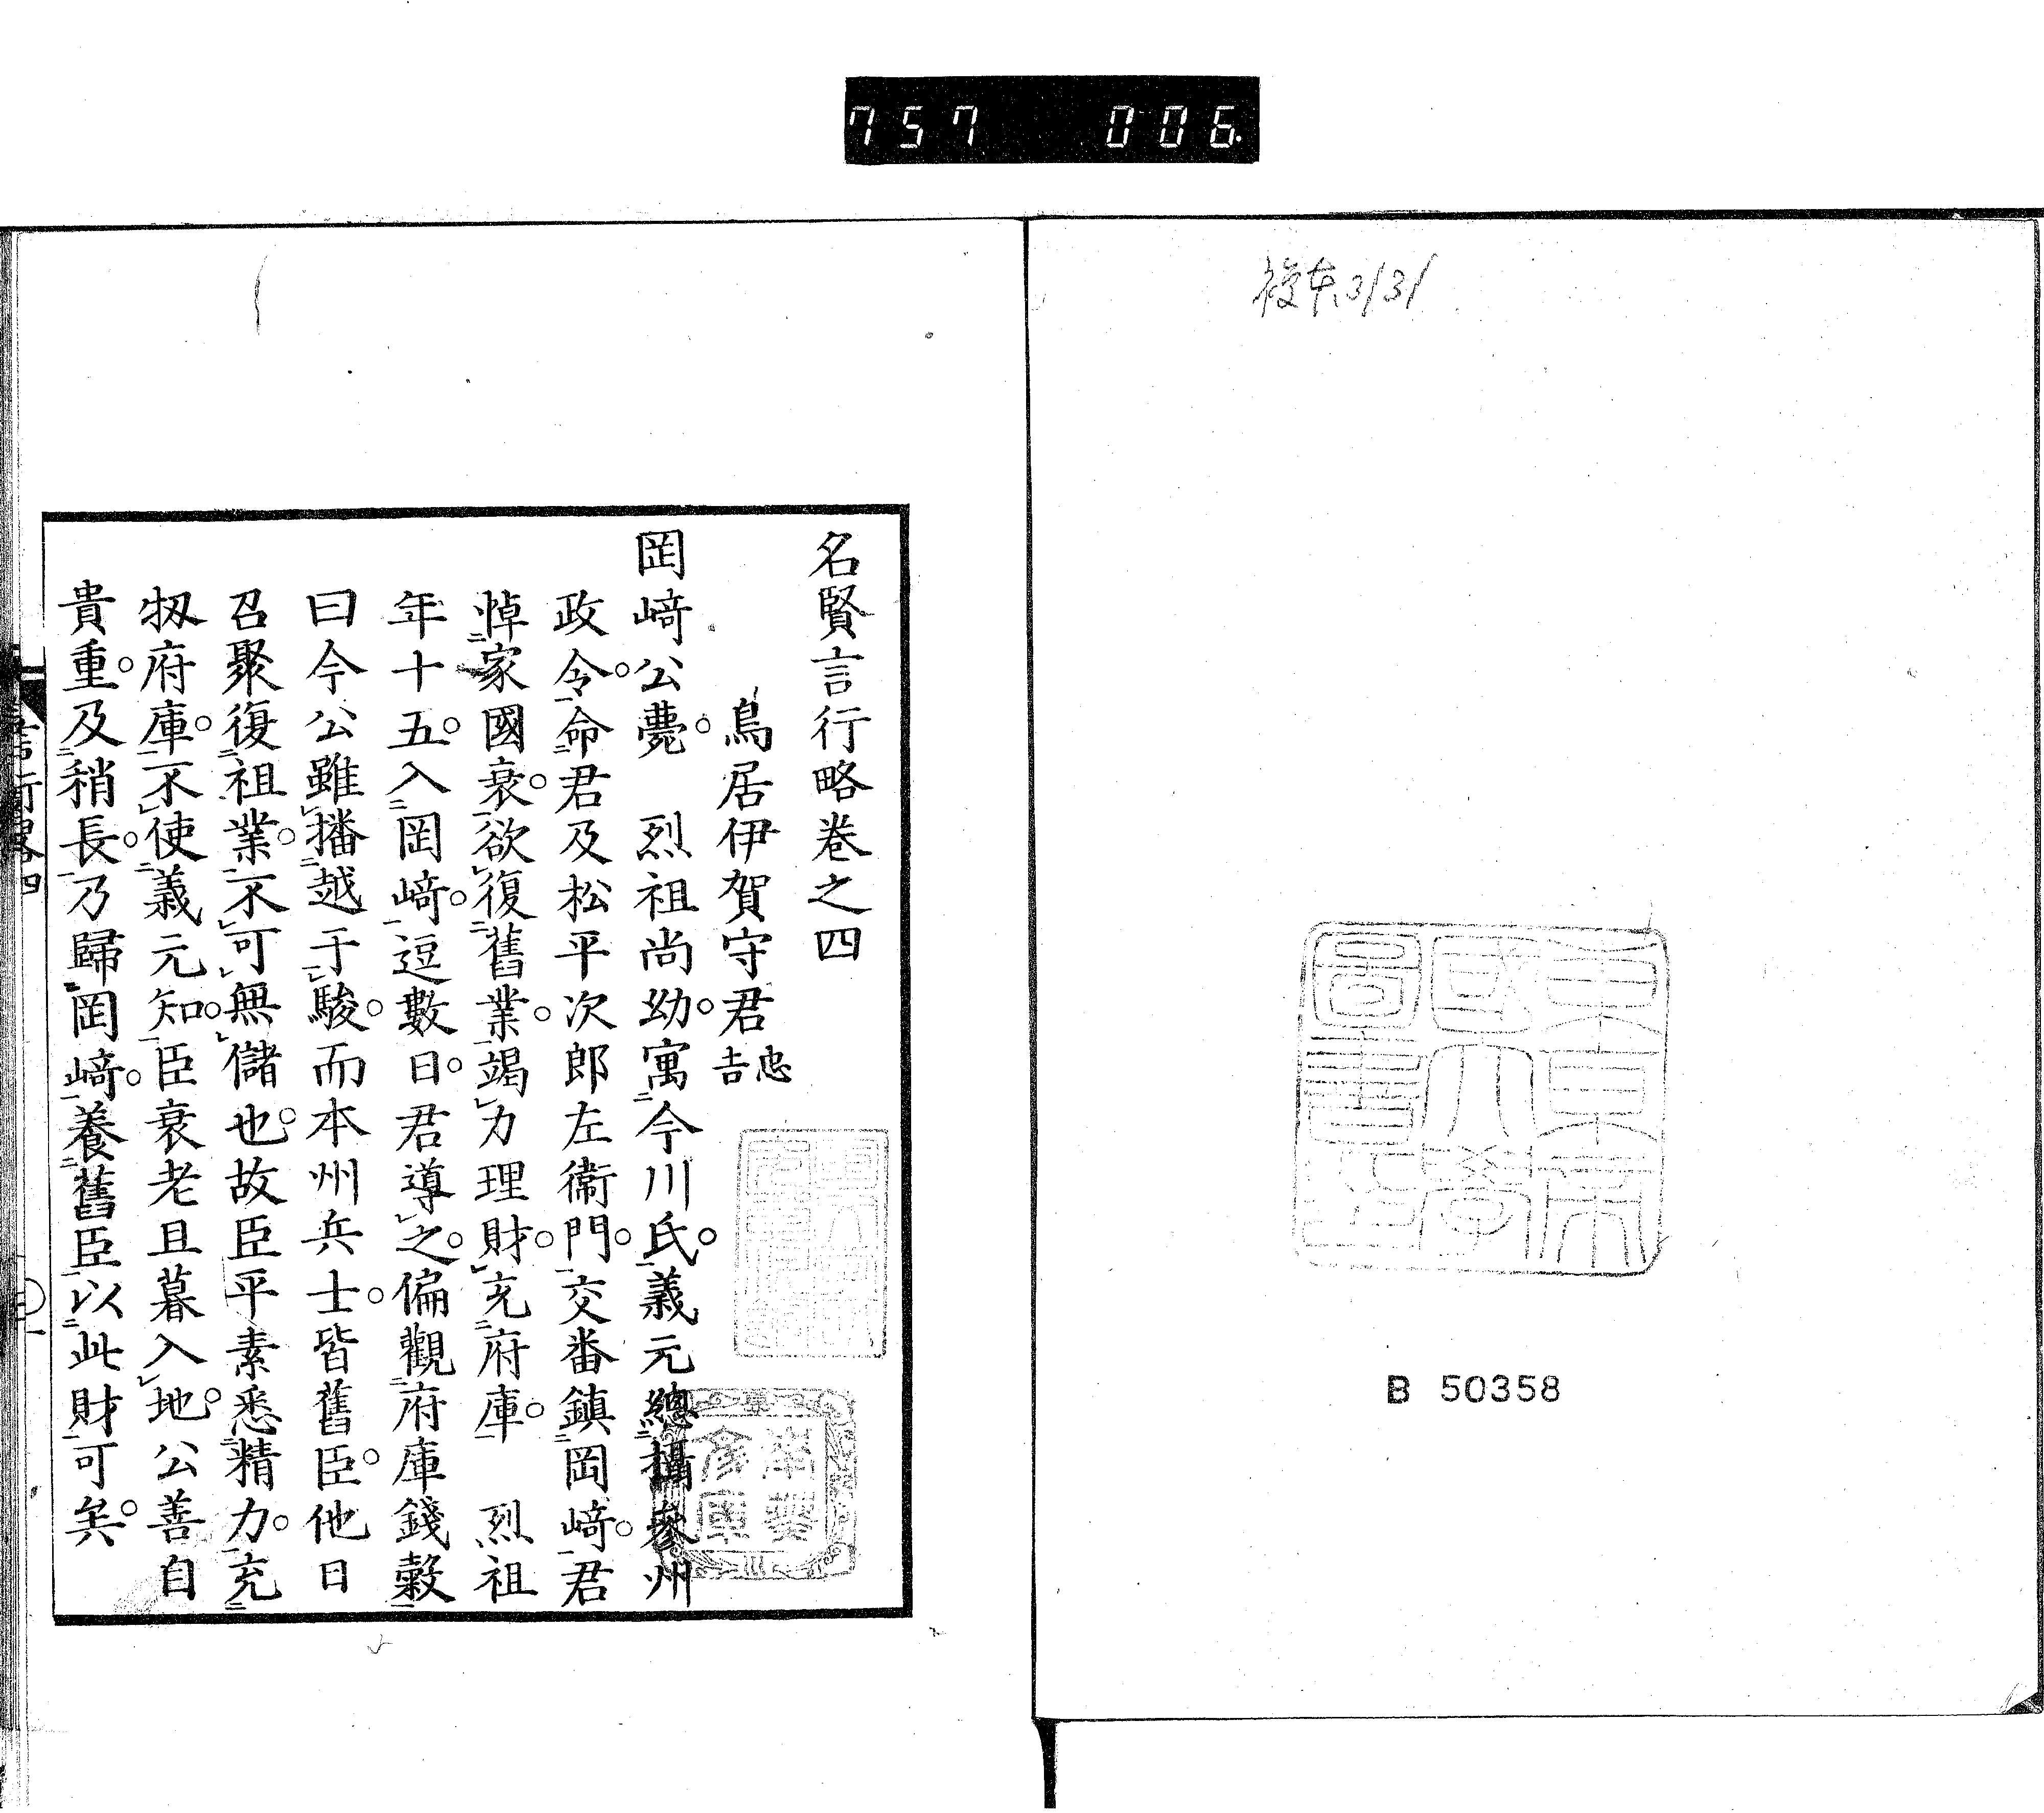 757 006
復本3/31
東京帝國大學圖書印
B 50358
名賢言行略卷之四
鳥居伊賀守君忠吉
岡﨑公薨。 烈祖尚幼。寓今川氏。義元總攝參州
政令。命君及松平次郎左衞門。交番鎮岡﨑。君
悼家國衰。欲復舊業。竭力理財。充府庫。 烈祖
年十五。入岡﨑。逗數日。君導之。偏觀府庫錢穀
曰今公雖播越于駿。而本州兵士。皆舊臣。他日
召聚復祖業。不可無儲也。故臣平素悉精力。充
牣府庫。不使義元知。臣衰老且暮入地。公善自
貴重。及稍長。乃歸岡﨑。養舊臣以此財可矣。
言行略四